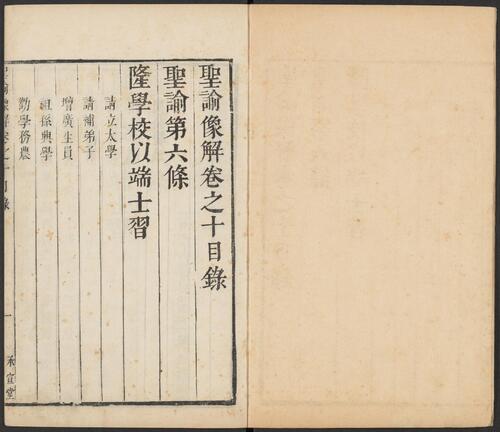 聖諭像解卷之十目錄
聖諭第六條
隆學校以端士習
請立太學
請補弟子
增廣生員
祖孫興學
勸學務農
聖諭像解卷之十目錄
一
承宣堂